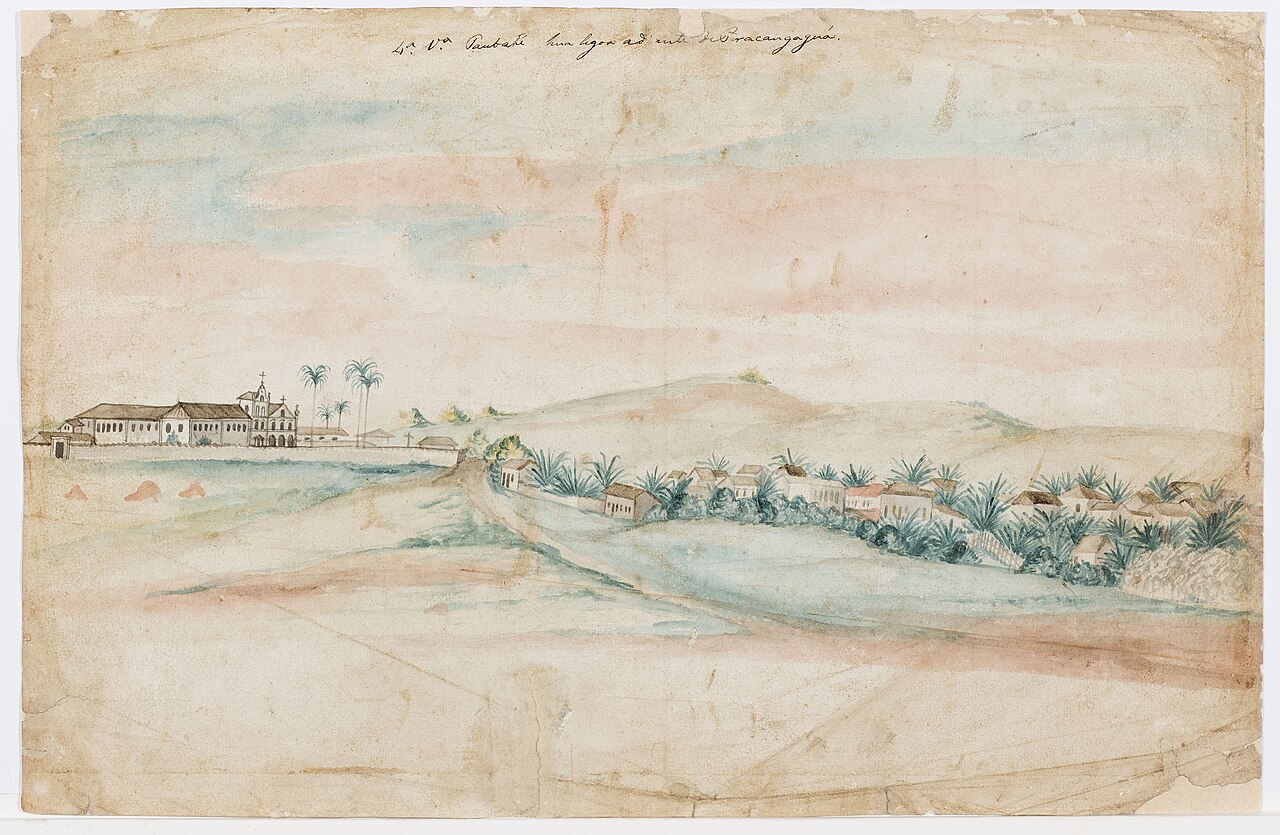 4ª Vª Taubaté hua legoa adiante de Piracangaguá.